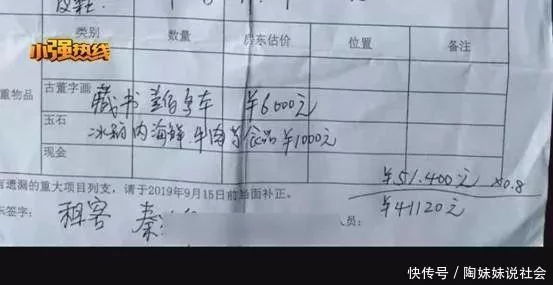 类别 数量 房东估价 位置 备注
小强热线
重物品
古董字画
藏书 ¥6000元
玉石
冰箱内海鲜.牛肉等食品¥1000元
现金
有遗漏的重大项目列支，请于2019年9月15日前当面补正。
¥51.400元 ×0.8
¥41120元
东签字： 租客 秦 员：
快传号 / 陶妹妹说社会